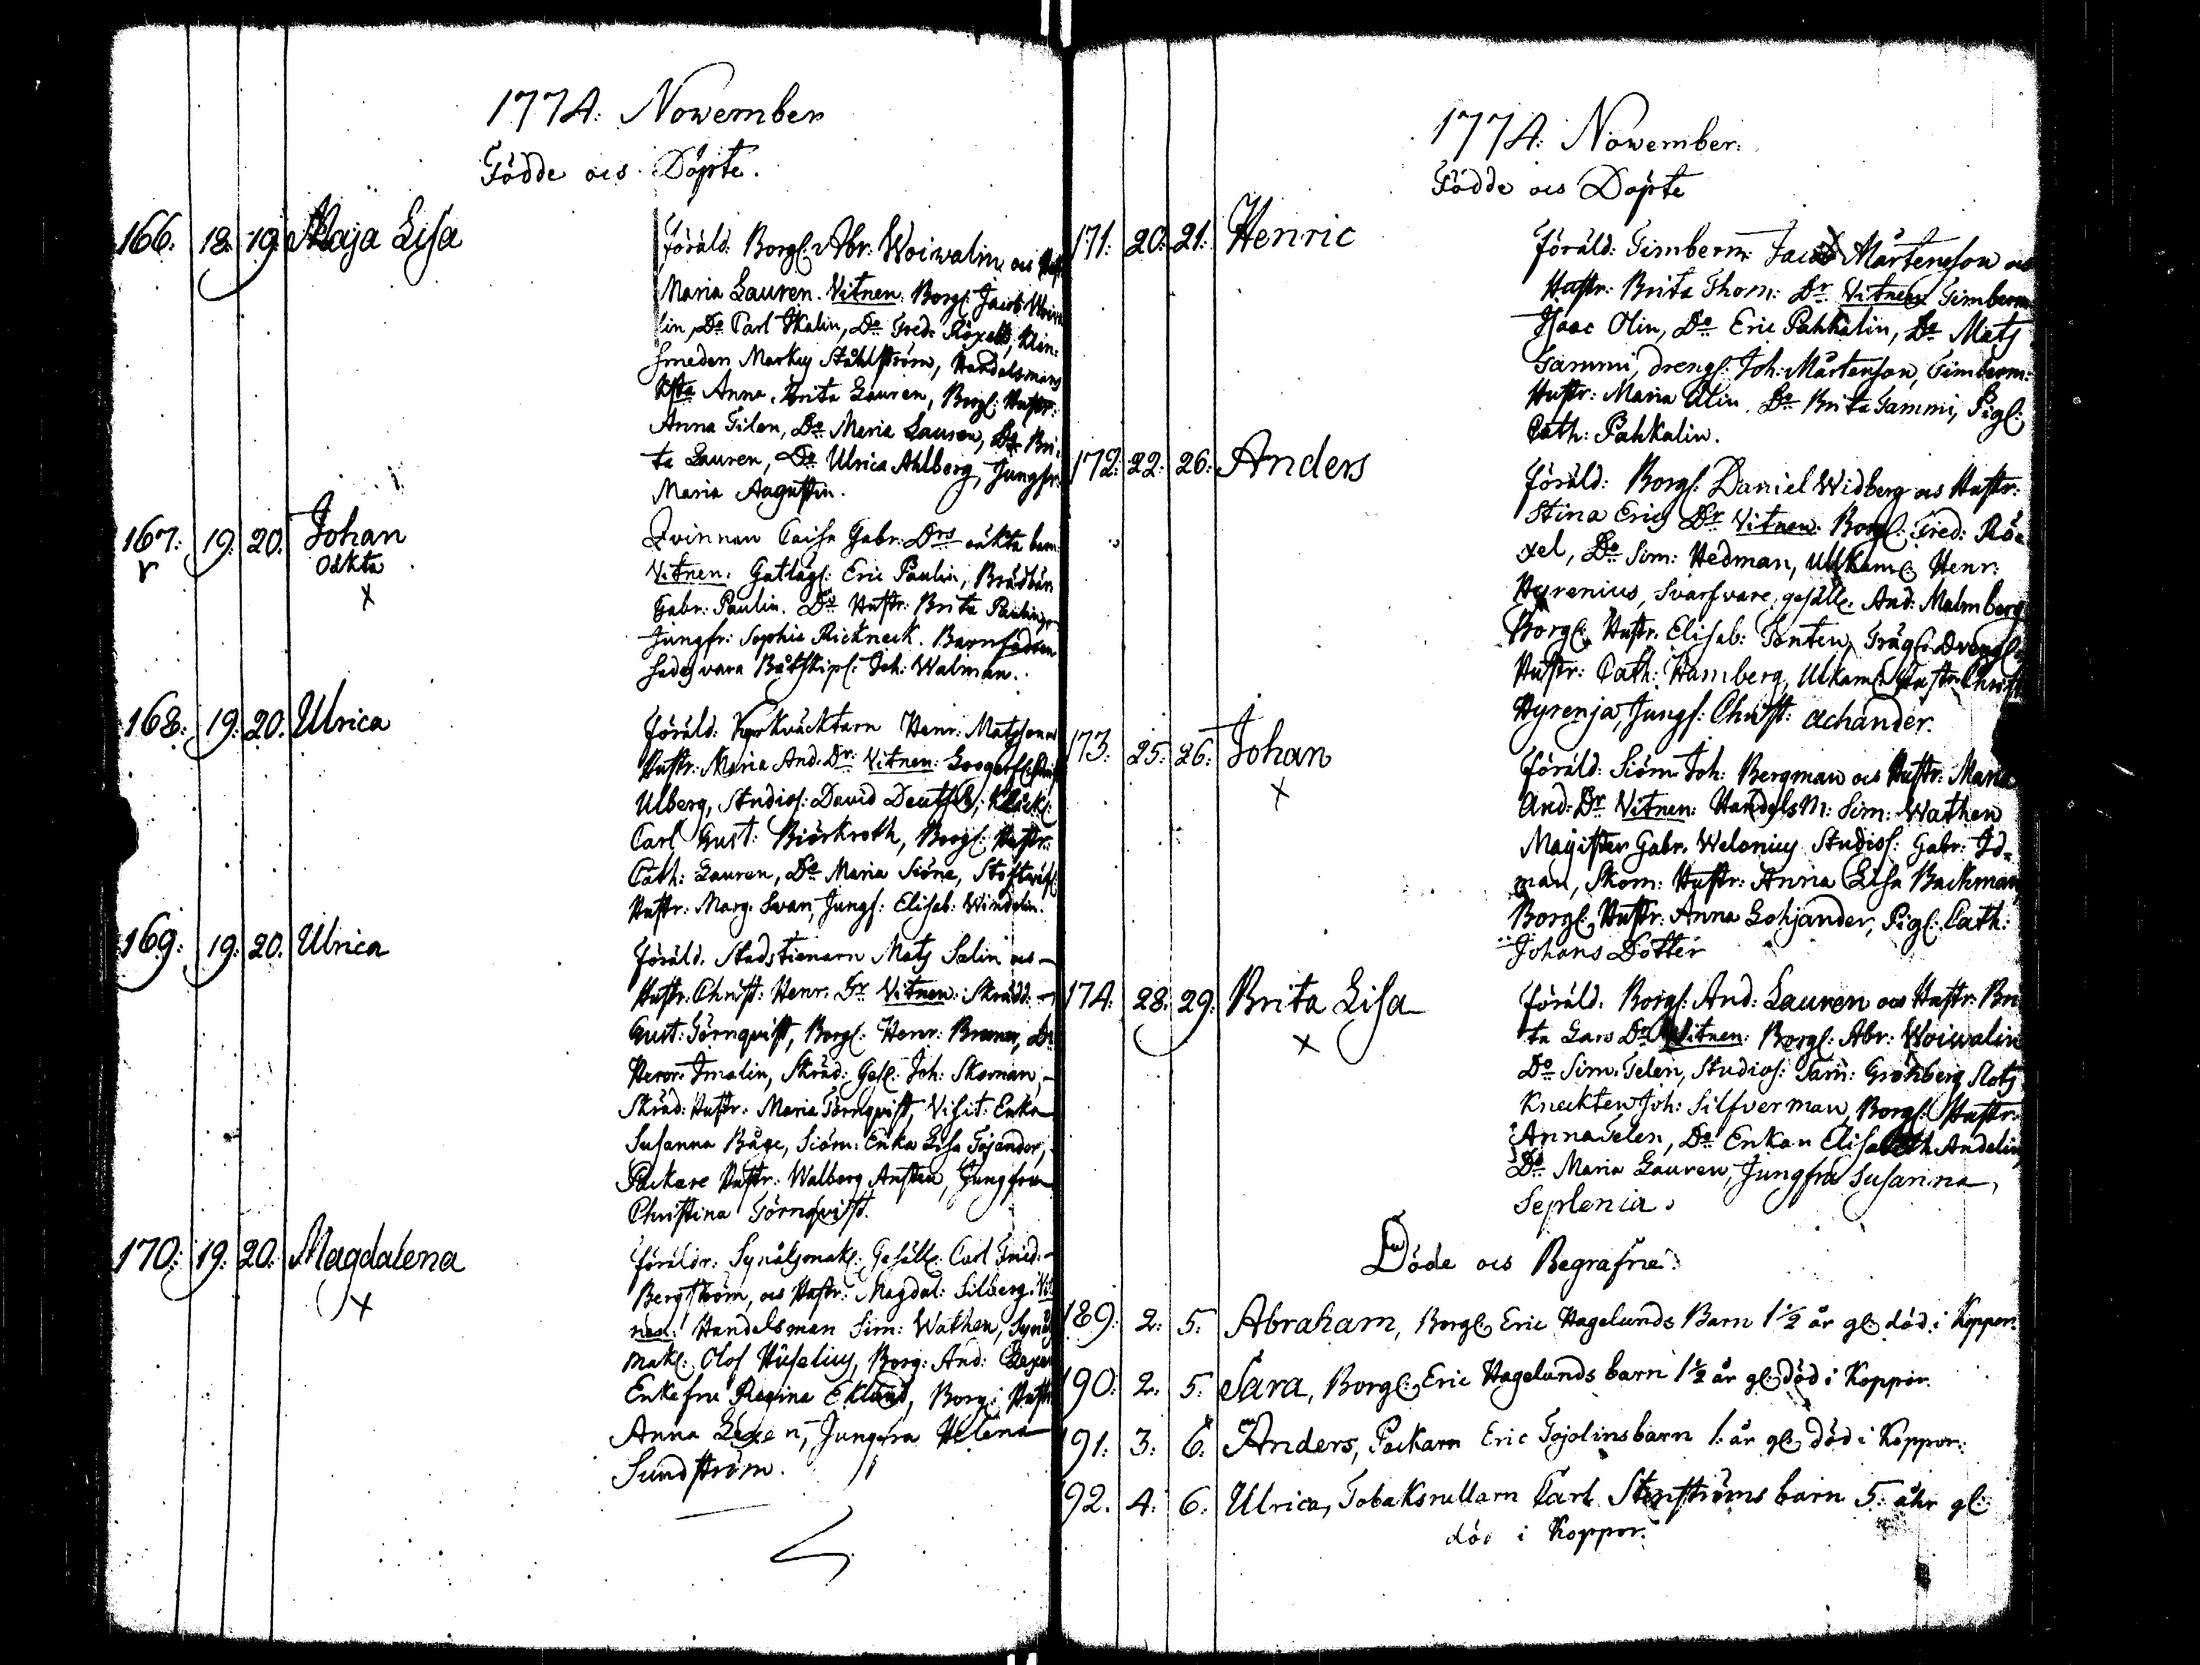 1774: November
Födde ock Döpte.
166. 18. 19. Maja Lisa
Föräld: Borgl: Abr: Woiwalin ock Hust
Maria Lauren. Vitnen: Borgl: Jacob Woiwa
lin, Do Carl Skalin, Do Fred: Röxell, Klen:
smeden Markus Ståhlström, Handelsmans
Anna Brita Lauren, Borgl: Hustr:
Anna Tilen, Do Maria Lauren, Do Bri:
ta Lauren, Do Ulrica Ahlberg, Jungfr:
Maria Augustin.
167: 19: 20. Johan
Oäkta
x
Qvinnan Caisa Gabr: Drs oäkta barn
Vitnen: Gatlägl: Eric Paulin,
Gabr: Paulin. Do Hustr: Brita Paulin,
Jungfr: Sophia Rickneck. Barnfadren
sades vara Båtskipl: Joh: Walman.
168: 19: 20. Ulrica
Föräld: Kyrkväcktarn Henr: Matsson
Hustr: Maria And: Dr: Vitnen:
Ulberg, Studios: David Deutsch, Klock:
Carl Gust: Biörkroth, Borgl: Hustr:
Cath: Lauren, Do Maria Siöne,
Hustr: Marg: Swan, Jungf: Elisab: Windelin.
169: 19: 20. Ulrica
Föräld. Stadstienarn Mats Salin ock
Hustr: Christ: Henr: Dr Vitnen: Skrädd:
Gust: Törnqvist, Borgl: Henr: Bremer, Do
Henr: Imalin, Skräd: Gesl: Joh: Skoman,
Skräd: Hustr: Maria Törnqvist, Visit: Enka
Susanna Båge, Siöm: Enka Lisa Tojander,
Packare Hustr: Walborg Ansten, Jungfru
Christina Törnqvist.
170: 19: 20: Magdalena
x
Föräldr: Synålsmak: Gesäll: Carl Fried:
Bergström, ock Hustr: Magdal: Silberg. Vit
nen: Handelsman Sim: Wathen, Synåls
mak: Olof Huselius, Borg: And: Lexen
Enkefru Regina Eklund, Borg: Hustr
Anna Lexen, Jungfra Helena
Sundström.
1774: November:
Födde ock Döpte
171: 20: 21: Henric
Föräld: Timberm: Jacob Mårtensson ock
Hustr: Brita Thom: Dr Vitnen Timberm
Isaac Olin, Do Eric Pahkalin, Do Mats
Sammi, drengs: Joh: Mårtenson, Timberm:
Hustr: Maria Ulin, Do Brita Sammi, Pigl:
Cath: Pahkalin.
172: 22: 26: Anders
Föräld: Borgl: Daniel Widberg ock Hustr:
Stina Erics Dr Vitnen: Borgl: Fred: Rö=
xel, Do Sim: Hedman, Ullkam: Henr:
Hyrenius, Svarfvare gesälle. And: Malmberg
Borgl: Hustr: Elisab: Tonten,
Hustr: Cath: Hamberg, Ulkam: Hustr Christ
Hyrenja, Jungf: Christ: Achander.
173: 25: 26: Johan
x
Föräld: Siöm: Joh: Bergman ock Hustr: Maria
And: Dr Vitnen: Handels M: Sim: Wathen
Magister Gabr. Welonius Studios: Gabr: Id=
man, Skom: Hustr: Anna Lisa Backman,
Borgl: Hustr: Anna Lohjander, Pigl: Cath:
Johans Dotter
174: 28: 29: Brita Lisa
x
Föräld: Borgl: And: Lauren ock Hustr: Bri
ta Lars Dr Vitnen: Borgl: Abr: Woiwalin
Do Sim: Telen, Studios: Sam: Grönberg Slots
Kneckten Joh: Silfverman, Borgl: Hustr:
Anna Telen, Do Enkan Elisabeth Andelin,
Do Maria Lauren, Jungfru Susanna
Seplenia.
Döde ock Begrafne:
189: 2: 5: Abraham, Borgl: Eric Hagelunds Barn 1 1/2 år gl: död i Koppor:
190: 2. 5. Sara, Borgl: Eric Hagelunds barn 1 1/2 år gl: död i Koppor.
191: 3: 6: Anders, Packarn Eric Tojolins barn 1: år gl: död i Koppor:
192. 4: 6: Ulrica, Tobaksrullarn Carl Stenströms barn 5: åhr gl:
död i Koppor.